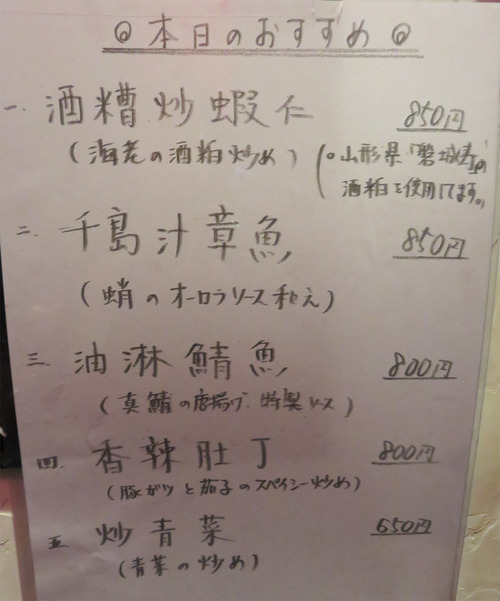 ◎ 本日のおすすめ ◎
一. 酒糟炒蝦仁 850円
(海老の酒粕炒め) (○山形県「磐城寿」の
酒粕を使用してます。)
二. 千島汁章魚 850円
(蛸のオーロラソース和え)
三. 油淋鯖魚 800円
(真鯖の唐揚げ、特製ソース)
四. 香辣肚丁 800円
(豚ガツと茄子のスパイシー炒め)
五. 炒青菜 650円
(青菜の炒め)